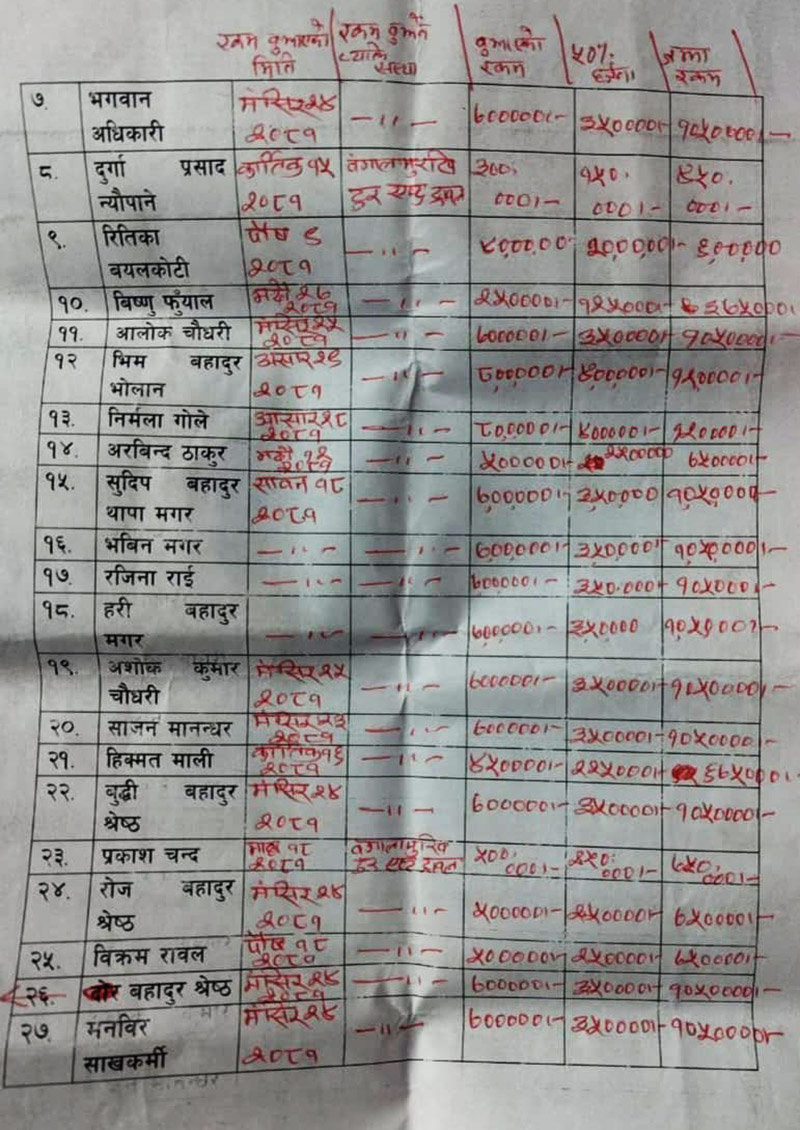 रकम बुझाएको मिति / रकम बुझ्ने व्यक्ति संस्था / बुझाएको रकम / ५०% हर्जना / जम्मा रकम
७. भगवान अधिकारी मंसिर २४ २०८१ —〃— ७०००००।- ३५००००।- १०५००००।-
८. दुर्गा प्रसाद न्यौपाने कार्तिक १५ २०८१ ३००,०००।- १५०,०००।- ४५०,०००।-
९. रितिका बयलकोटी पौष ९ २०८१ —〃— ४,०००,०० २,०००,००।- ६,०००,००
१०. बिष्णु फुँयाल २०८१ —〃— २५००००।- १२५०००।- ३७५०००।
११. आलोक चौधरी मंसिर २५ २०८१ —〃— ७०००००।- ३५००००।- १०५००००।-
१२ भिम बहादुर भोलान असार २९ २०८१ —〃— ८०००००।- ४०००००।- १२०००००।-
१३. निर्मला गोले आसार २८ २०८१ —〃— ८०००००।- ४०००००।- १२०००००।-
१४. अरबिन्द ठाकुर २०८१ —〃— ५०००००।- २५०००० ७५००००।-
१५. सुदिप बहादुर थापा मगर सावन १८ २०८१ —〃— ७०००००।- ३५०००० १०५००००—
१६. भबिन मगर —〃— —〃— ७०००००।- ३५००००।- १०५००००।-
१७. रजिना राई —〃— —〃— ७०००००।- ३५००००।- १०५००००।-
१८. हरी बहादुर मगर —〃— —〃— ७०००००।- ३५०००० १०५००००।-
१९. अशोक कुमार चौधरी मंसिर २५ २०८१ —〃— ७०००००।- ३५००००।- १०५००००।-
२०. साजन मानन्धर मंसिर २०८१ —〃— ७०००००।- ३५००००।- १०५००००।-
२१. हिक्मत माली कार्तिक १६ २०८१ —〃— ४५००००।- २२५०००।- ६७५०००।-
२२. बुद्धी बहादुर श्रेष्ठ मंसिर २४ २०८१ —〃— ७०००००।- ३५००००।- १०५००००।-
२३. प्रकाश चन्द माघ १८ २०८१ ५००,०००।- २५०,०००।- ७५०,०००।-
२४. रोज बहादुर श्रेष्ठ मंसिर २४ २०८१ —〃— ५०००००।- २५००००।- ७५००००।-
२५. विक्रम रावल पौष १८ २०८१ —〃— ५०००००।- २५००००।- ७५००००।-
२६. बहादुर श्रेष्ठ मंसिर २४ २०८१ —〃— ७०००००।- ३५००००।- १०५००००।-
२७ मनविर साखकर्मी मंसिर २४ २०८१ —〃— ७०००००।- ३५००००।- १०५००००।-